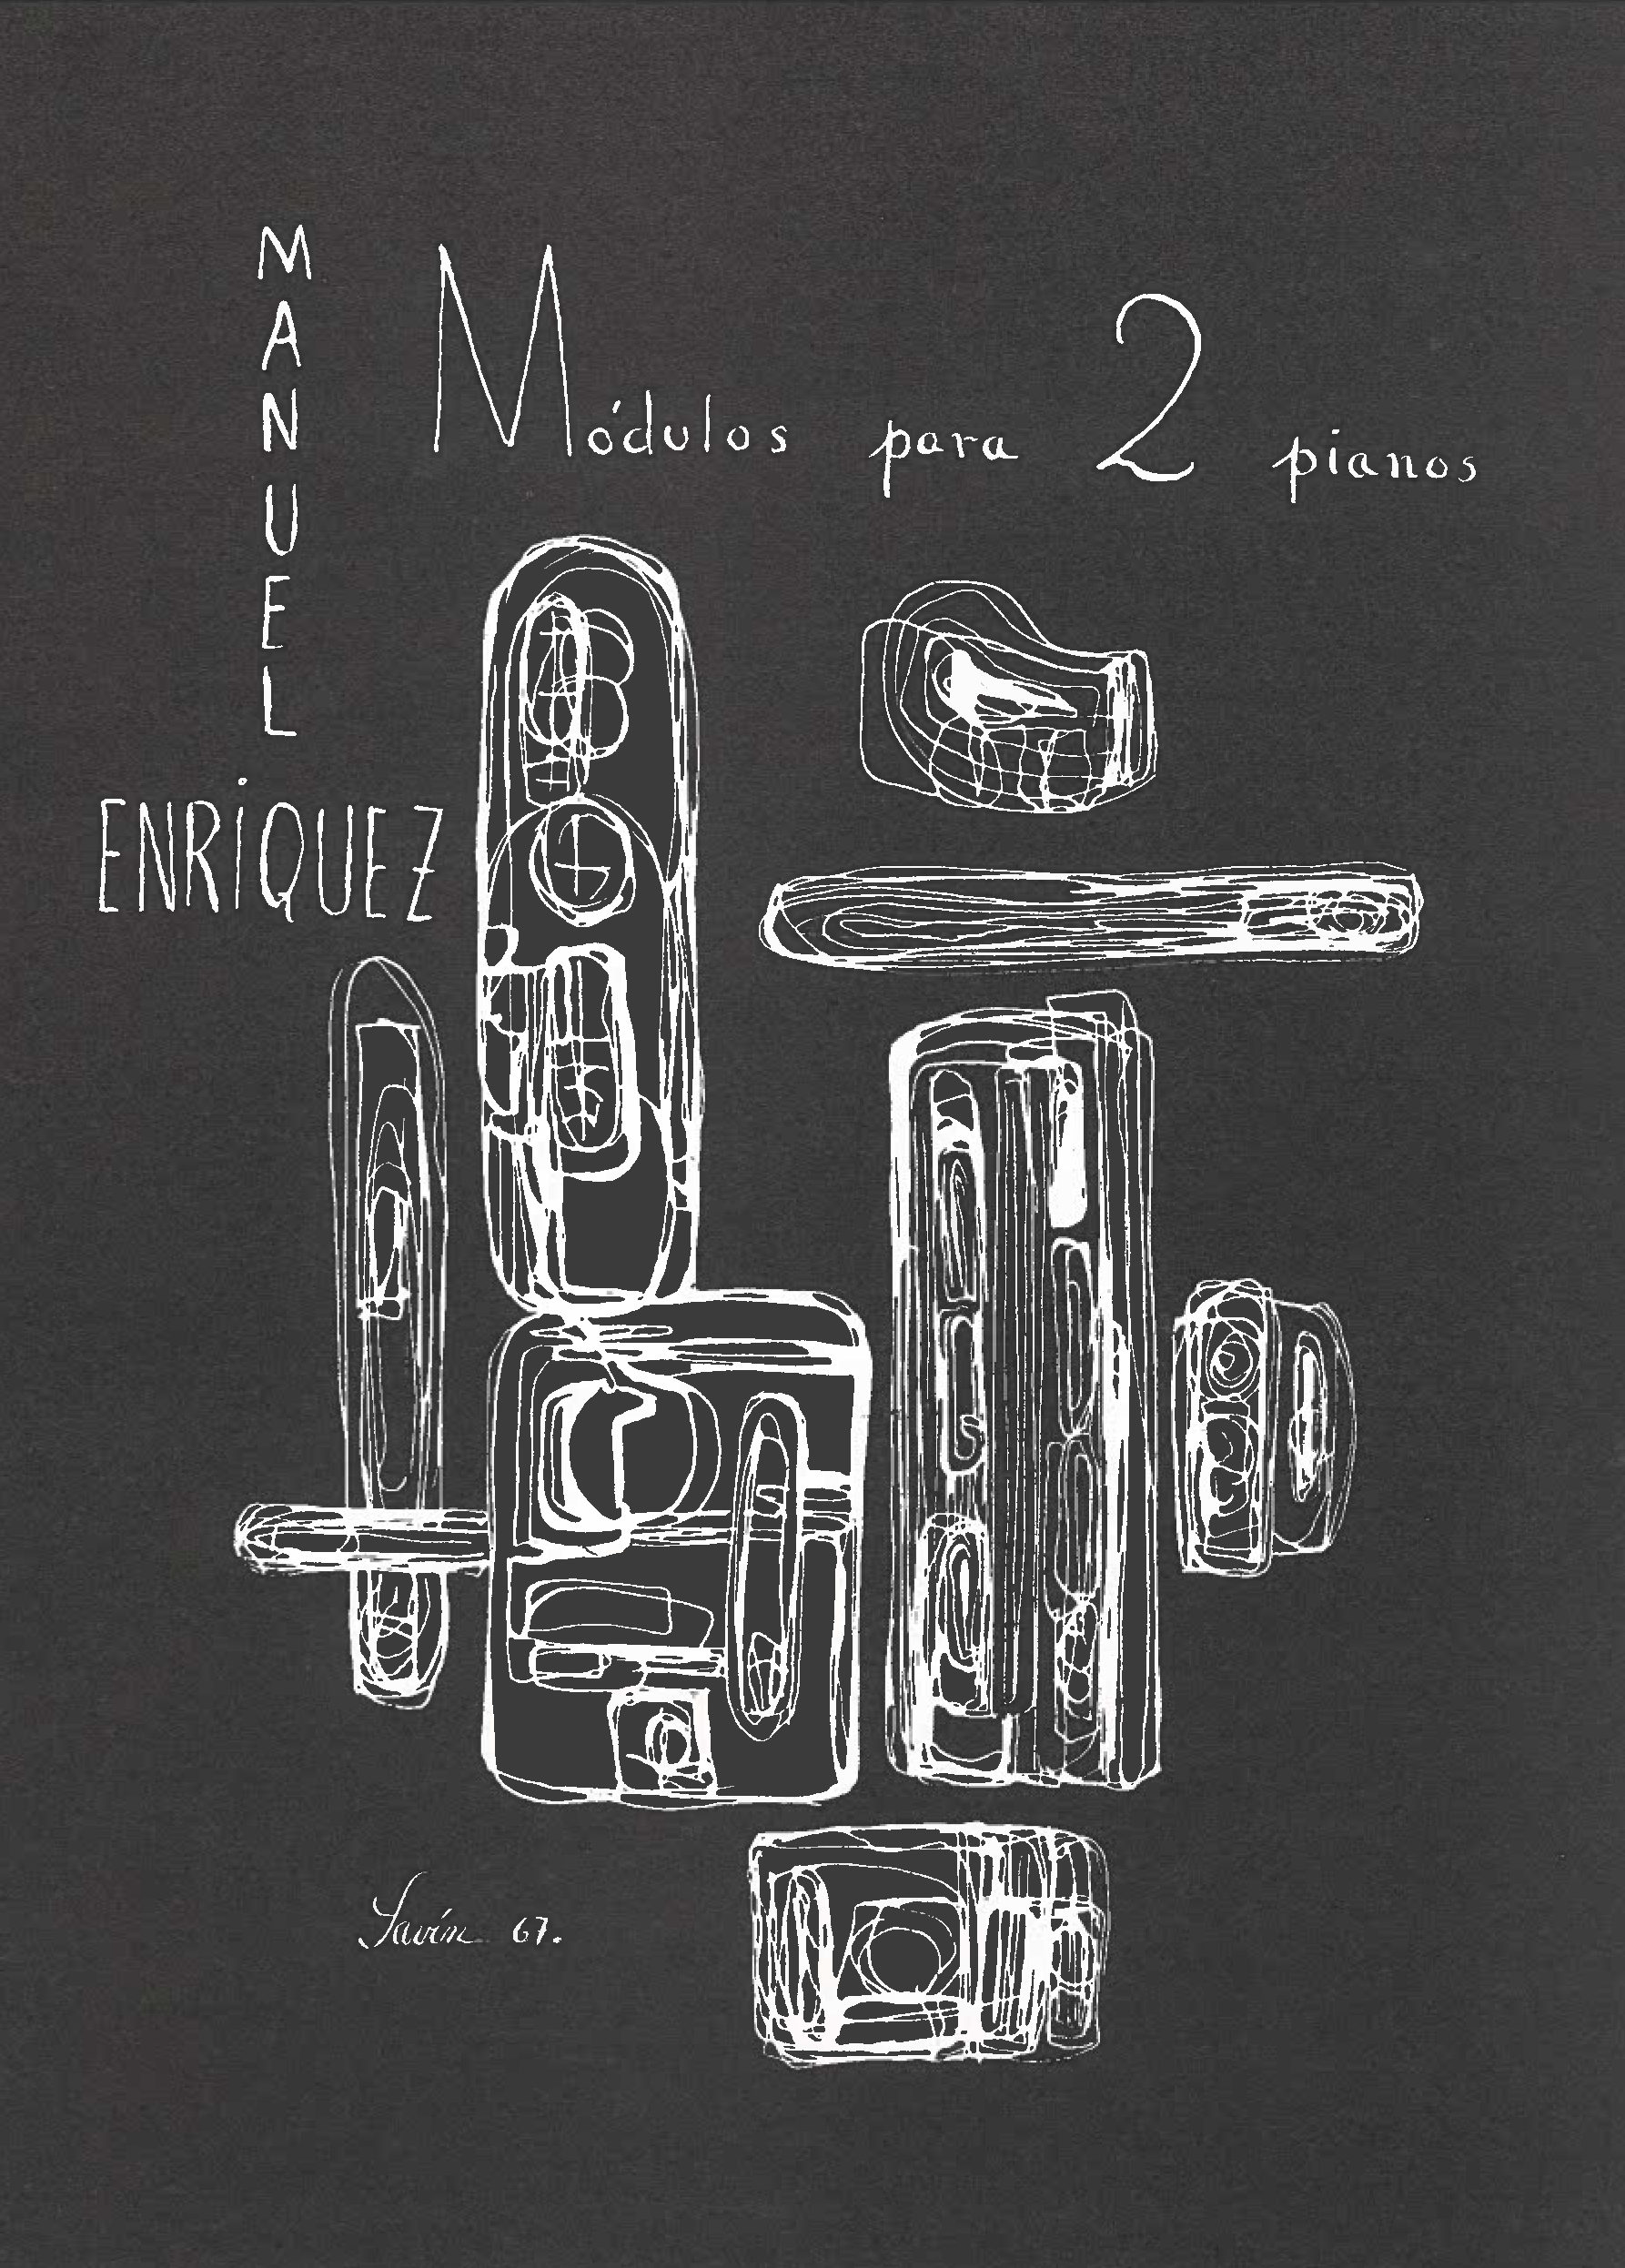 MANUEL
ENRiQUEZ
Módulos para 2 pianos
Savín 67.